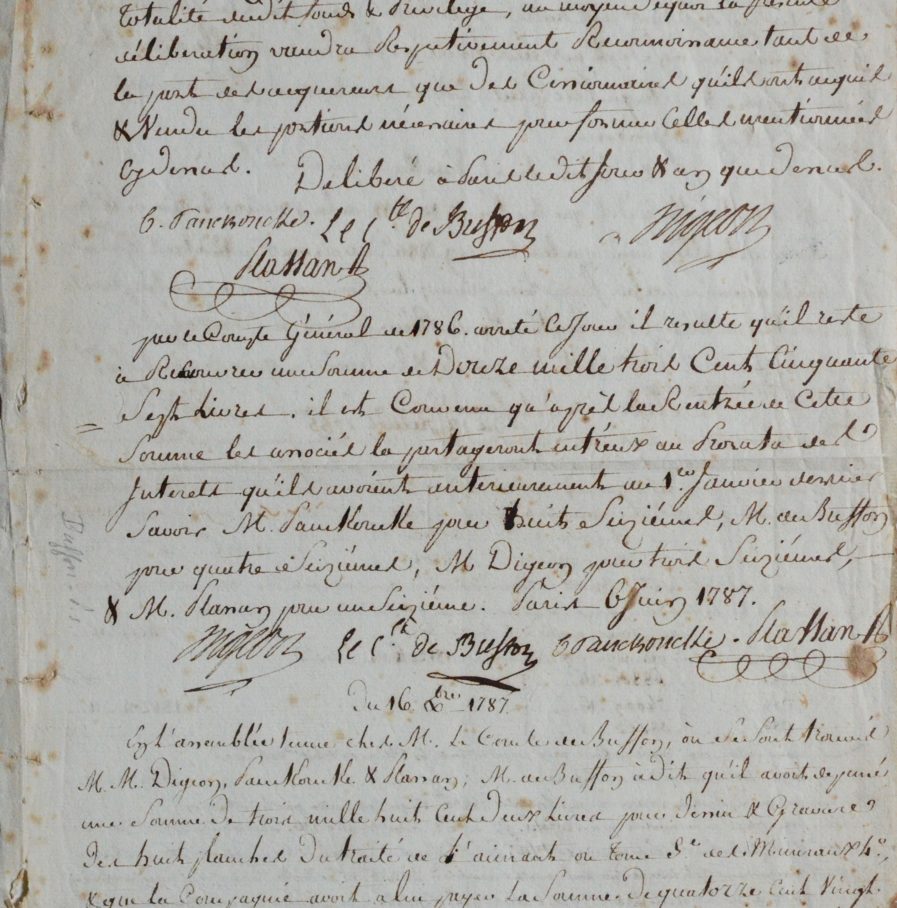 totalité dudit fonds & Privilege, au moyen de quoi la presente
déliberation vaudra Respectivement Reconnoissance tant de
la part des acquereurs que des Cessionnaires qu'ils ont acquis
& Vendu les portions nécessaires pour former Celles mentionnées
Cy dessus. Deliberé à Paris ledit Jour & an que dessus.
C. Panckoucke. Le Cte. de Buffon Digeon
Plassan
par le Compte Général de 1786. arreté Ce Jour il resulte qu'il reste
à Recouvrer une Somme de Douze mille trois Cent Cinquante
Sept Livres. il est Convenu qu'après la Rentrée de Cette
Somme les associés la partageront entr'eux au Prorata des
Interets qu'ils avoient anterieurement au 1er. Janvier dernier
Savoir M. Panckoucke pour huit Seiziémes, M. de Buffon
pour quatre Seiziémes, M Digeon pour trois Seiziémes,
& M. Plassan pour un Seiziéme. Paris 6 Juin 1787.
Digeon Le Cte. de Buffon C Panckoucke. Plassan
Du 16 Xbre 1787
En l'assemblée tenue chez M. Le Comte de Buffon, où se sont trouvés
M. M. Digeon, Panckoucke & Plassan, M. de Buffon à dit qu'il avoit depensé
une Somme De trois mille huit Cent Deux Livres pour dessin & Gravure
Des huit planches Du traité de l'aimant ou tome 5e des Mineraux 4o.,
& que la Compagnie avoit a lui payer La Somme De quatorze Cent Vingt
Buffon